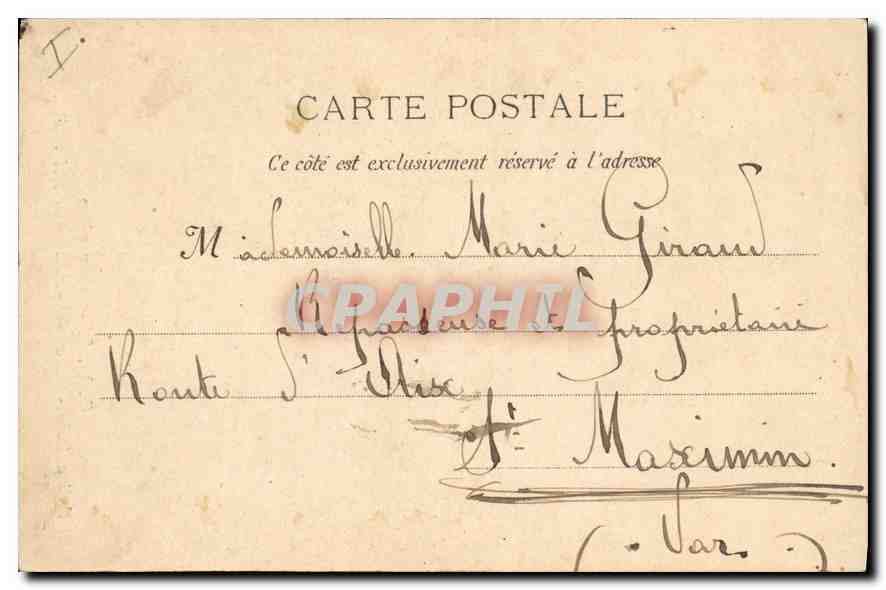 I.
CARTE POSTALE
Ce côté est exclusivement réservé à l'adresse
Mademoiselle. Marie Giraud
CPARHIL
Repasseuse et propriétaire
Route d'Aix
St Maximin.
(. Var. )